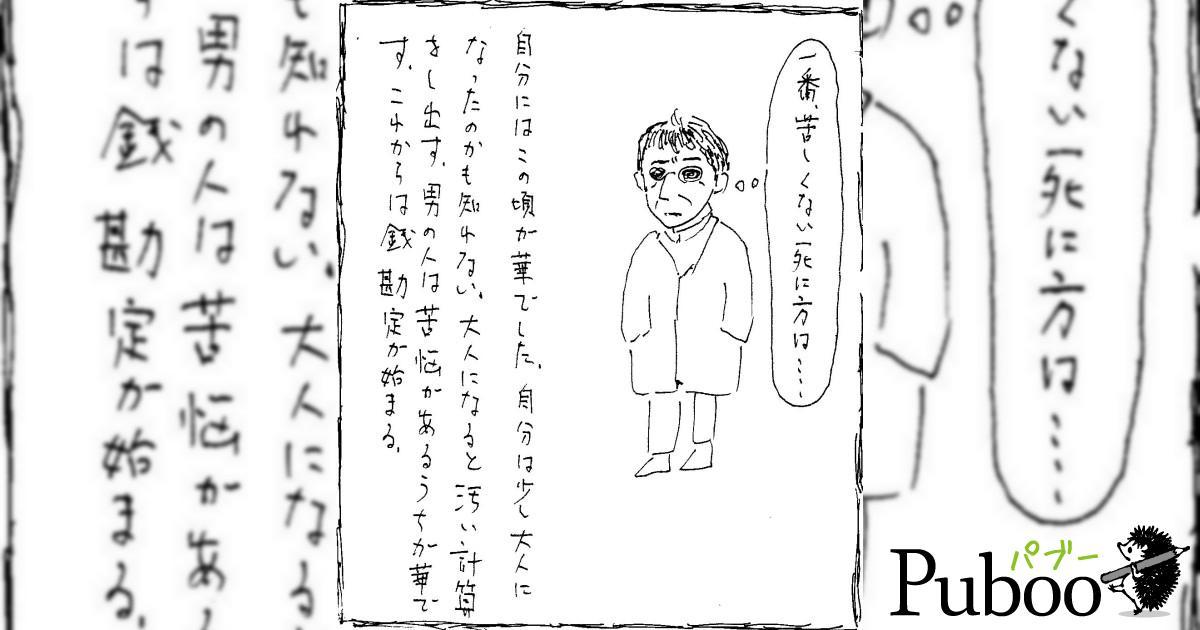 一番、苦しくない死に方は……
自分にはこの頃が華でした。自分は少し大人に
なったのかも知れない。大人になると汚い計算
をし出す。男の人は苦悩があるうちが華で
す。これからは銭勘定が始まる。
くない死に方は……
も知れない。大人になる
男の人は苦悩があ
は銭勘定が始まる。
パブー
Puboo